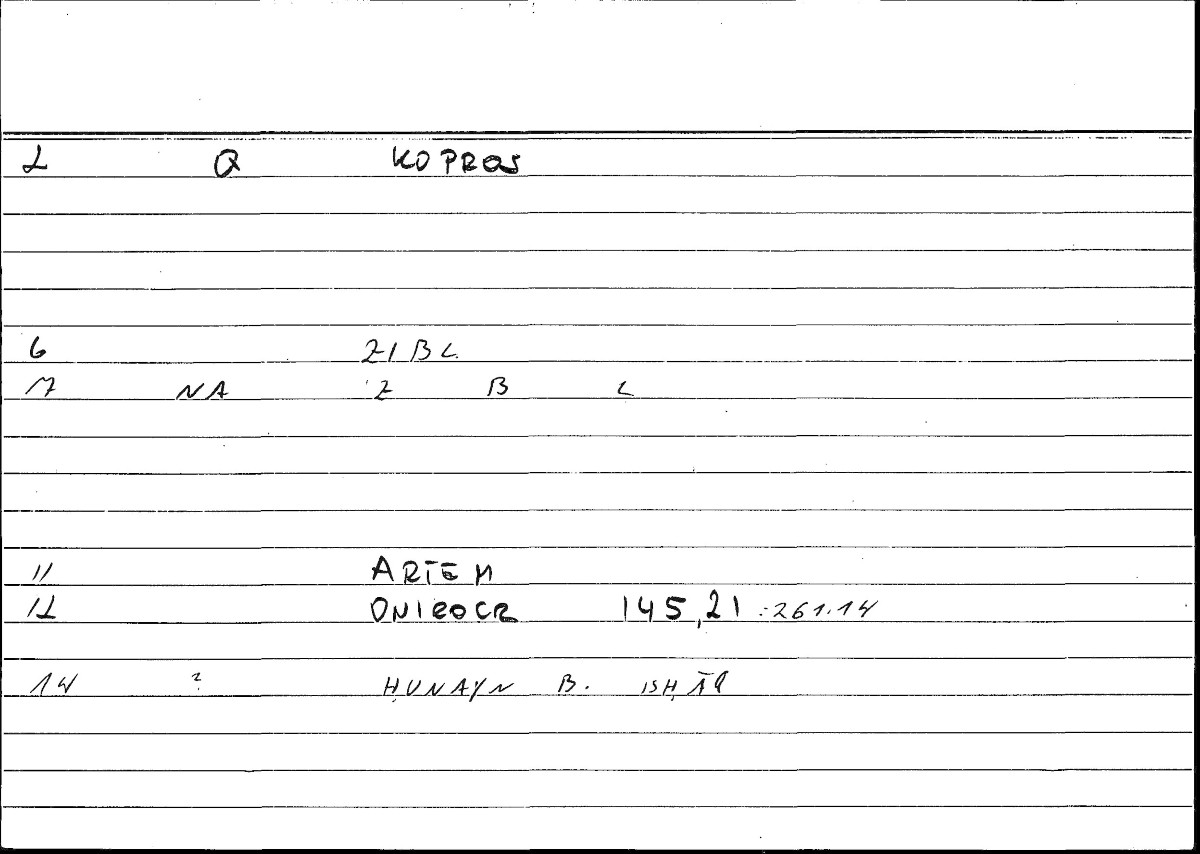 2 Q KOPROS
6 ZIBL
7 NA Z B L
11 ARTEM
12 ONIROCR 145,21 :261.14
14 ? ḤUNAYN B. ISḤĀQ